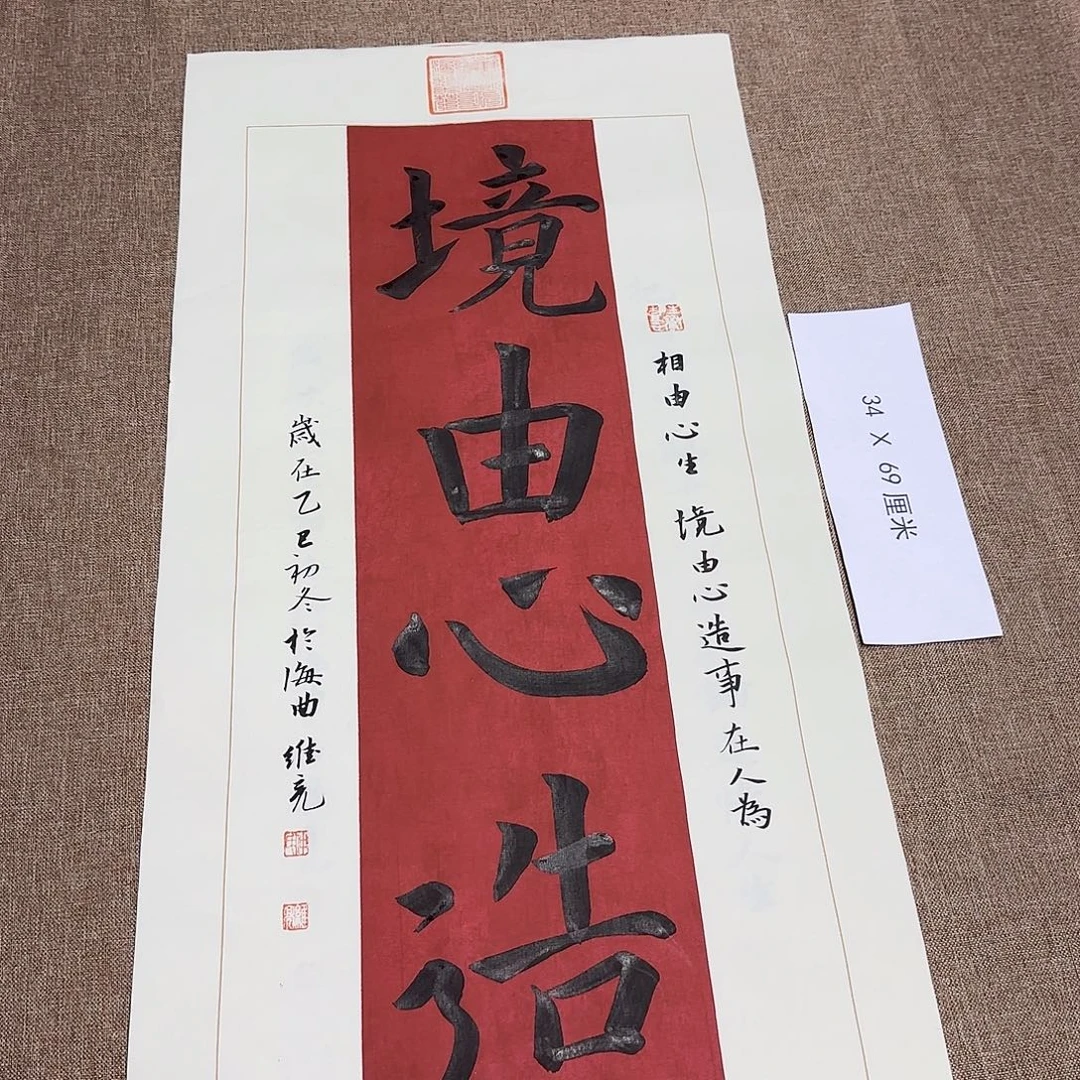 境由心造
相由心生 境由心造 事在人為
歲在乙巳初冬於海曲 維亮
34 X 69 厘米